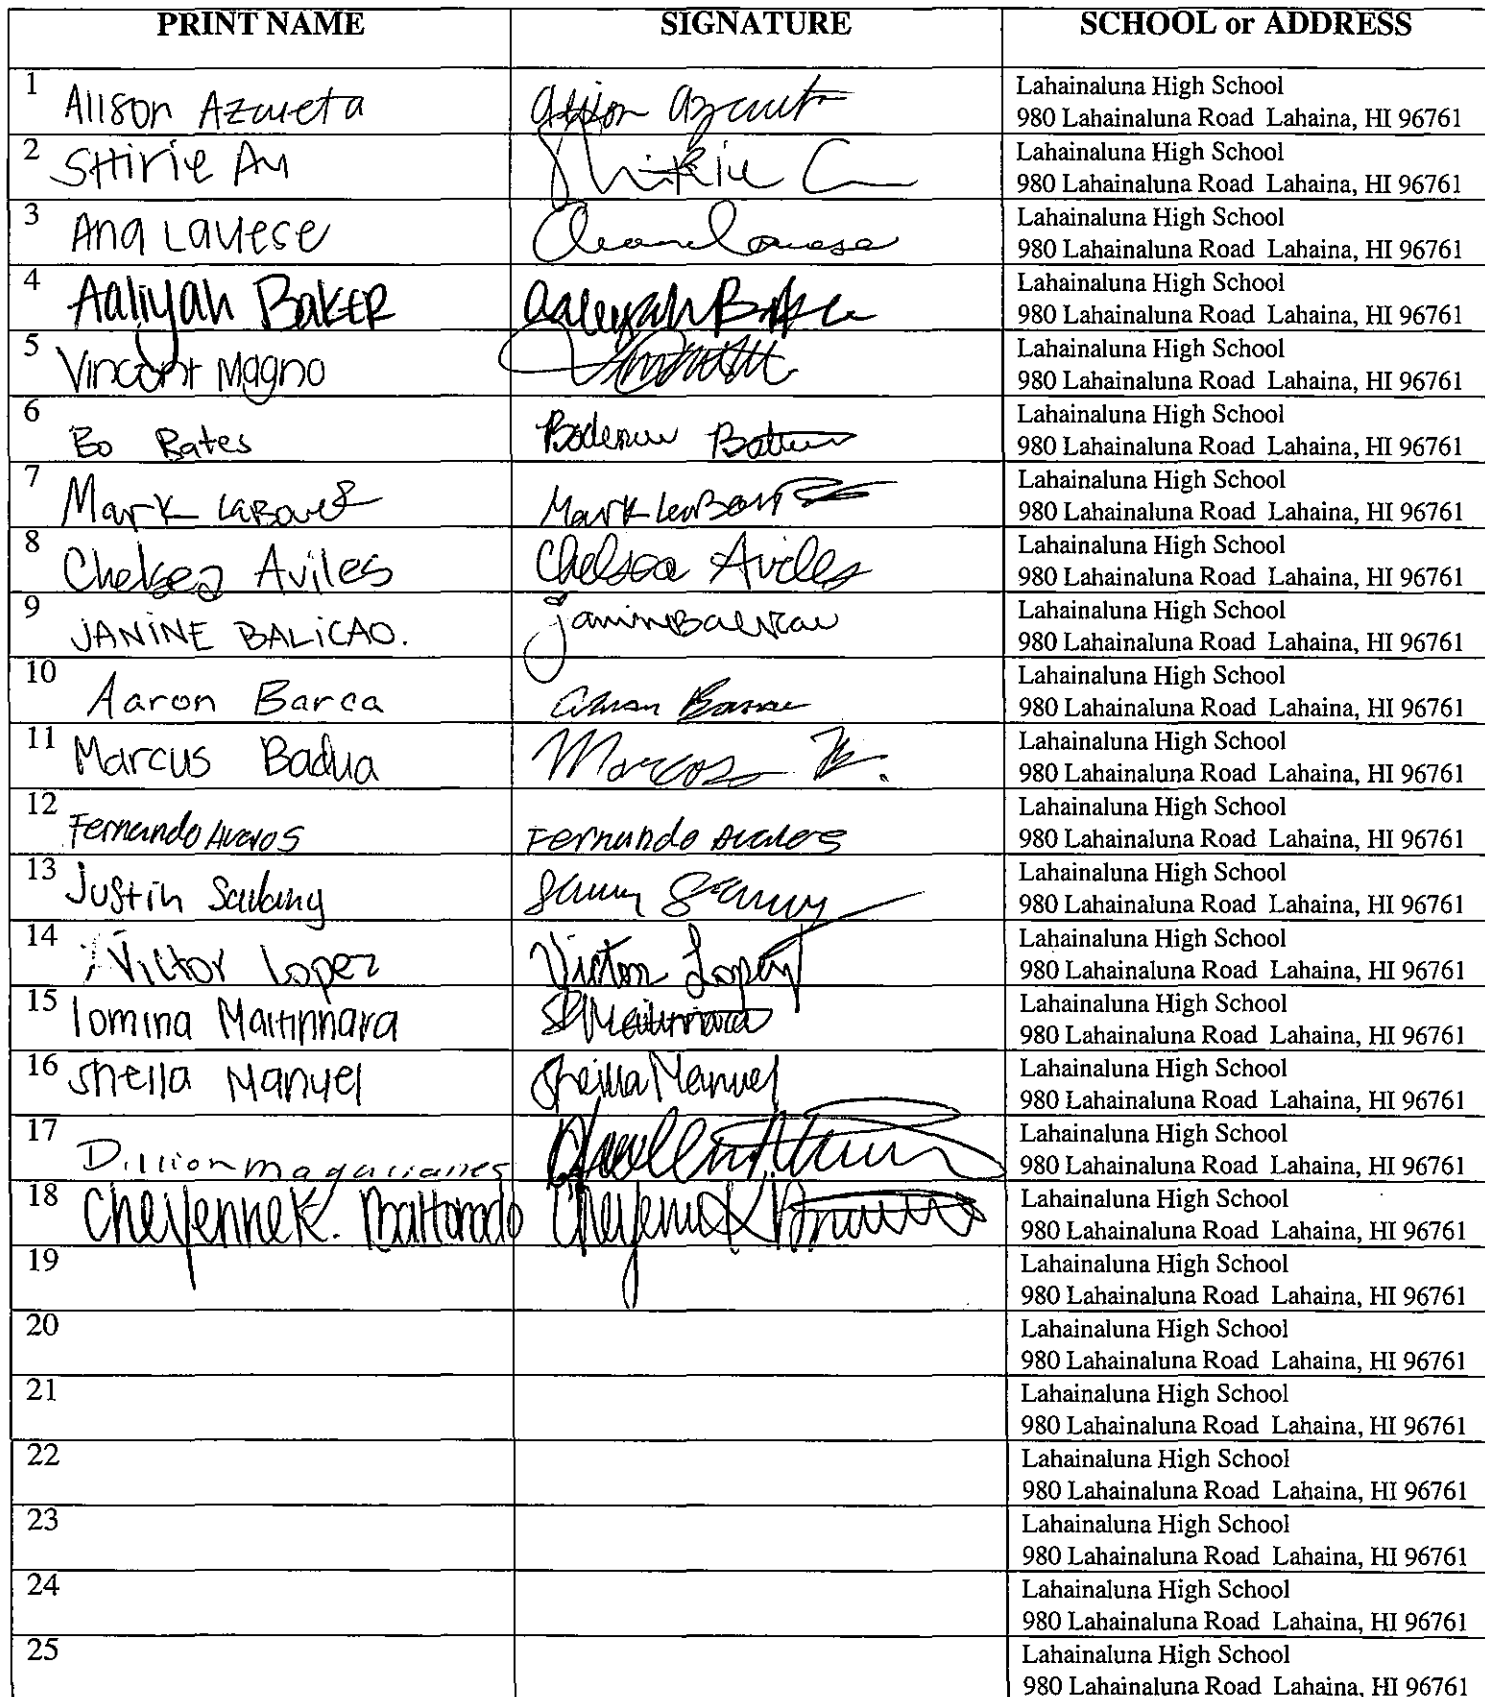 PRINT NAME SIGNATURE SCHOOL or ADDRESS
1 Alison Azcueta Alison Azcueta Lahainaluna High School
980 Lahainaluna Road Lahaina, HI 96761
2 SHirie Au Lahainaluna High School
980 Lahainaluna Road Lahaina, HI 96761
3 Ana Lavese Lahainaluna High School
980 Lahainaluna Road Lahaina, HI 96761
4 Aaliyah BaKER Aaliyah Baker Lahainaluna High School
980 Lahainaluna Road Lahaina, HI 96761
5 Vincent Magno Lahainaluna High School
980 Lahainaluna Road Lahaina, HI 96761
6 Bo Bates Lahainaluna High School
980 Lahainaluna Road Lahaina, HI 96761
7 Mark Mark Lahainaluna High School
980 Lahainaluna Road Lahaina, HI 96761
8 Chelsea Aviles Chelsea Aviles Lahainaluna High School
980 Lahainaluna Road Lahaina, HI 96761
9 JANiNE BALiCAO. janine Balicao Lahainaluna High School
980 Lahainaluna Road Lahaina, HI 96761
10 Aaron Barca Lahainaluna High School
980 Lahainaluna Road Lahaina, HI 96761
11 Marcus Badua Lahainaluna High School
980 Lahainaluna Road Lahaina, HI 96761
12 Fernando Avalos Fernando Avalos Lahainaluna High School
980 Lahainaluna Road Lahaina, HI 96761
13 Justin Lahainaluna High School
980 Lahainaluna Road Lahaina, HI 96761
14 Victor Lopez Victor Lopez Lahainaluna High School
980 Lahainaluna Road Lahaina, HI 96761
15 Lahainaluna High School
980 Lahainaluna Road Lahaina, HI 96761
16 Sheila Manuel Sheila Manuel Lahainaluna High School
980 Lahainaluna Road Lahaina, HI 96761
17 Dillion magallanes Lahainaluna High School
980 Lahainaluna Road Lahaina, HI 96761
18 Cheyenne K. Cheyenne K Lahainaluna High School
980 Lahainaluna Road Lahaina, HI 96761
19 Lahainaluna High School
980 Lahainaluna Road Lahaina, HI 96761
20 Lahainaluna High School
980 Lahainaluna Road Lahaina, HI 96761
21 Lahainaluna High School
980 Lahainaluna Road Lahaina, HI 96761
22 Lahainaluna High School
980 Lahainaluna Road Lahaina, HI 96761
23 Lahainaluna High School
980 Lahainaluna Road Lahaina, HI 96761
24 Lahainaluna High School
980 Lahainaluna Road Lahaina, HI 96761
25 Lahainaluna High School
980 Lahainaluna Road Lahaina, HI 96761